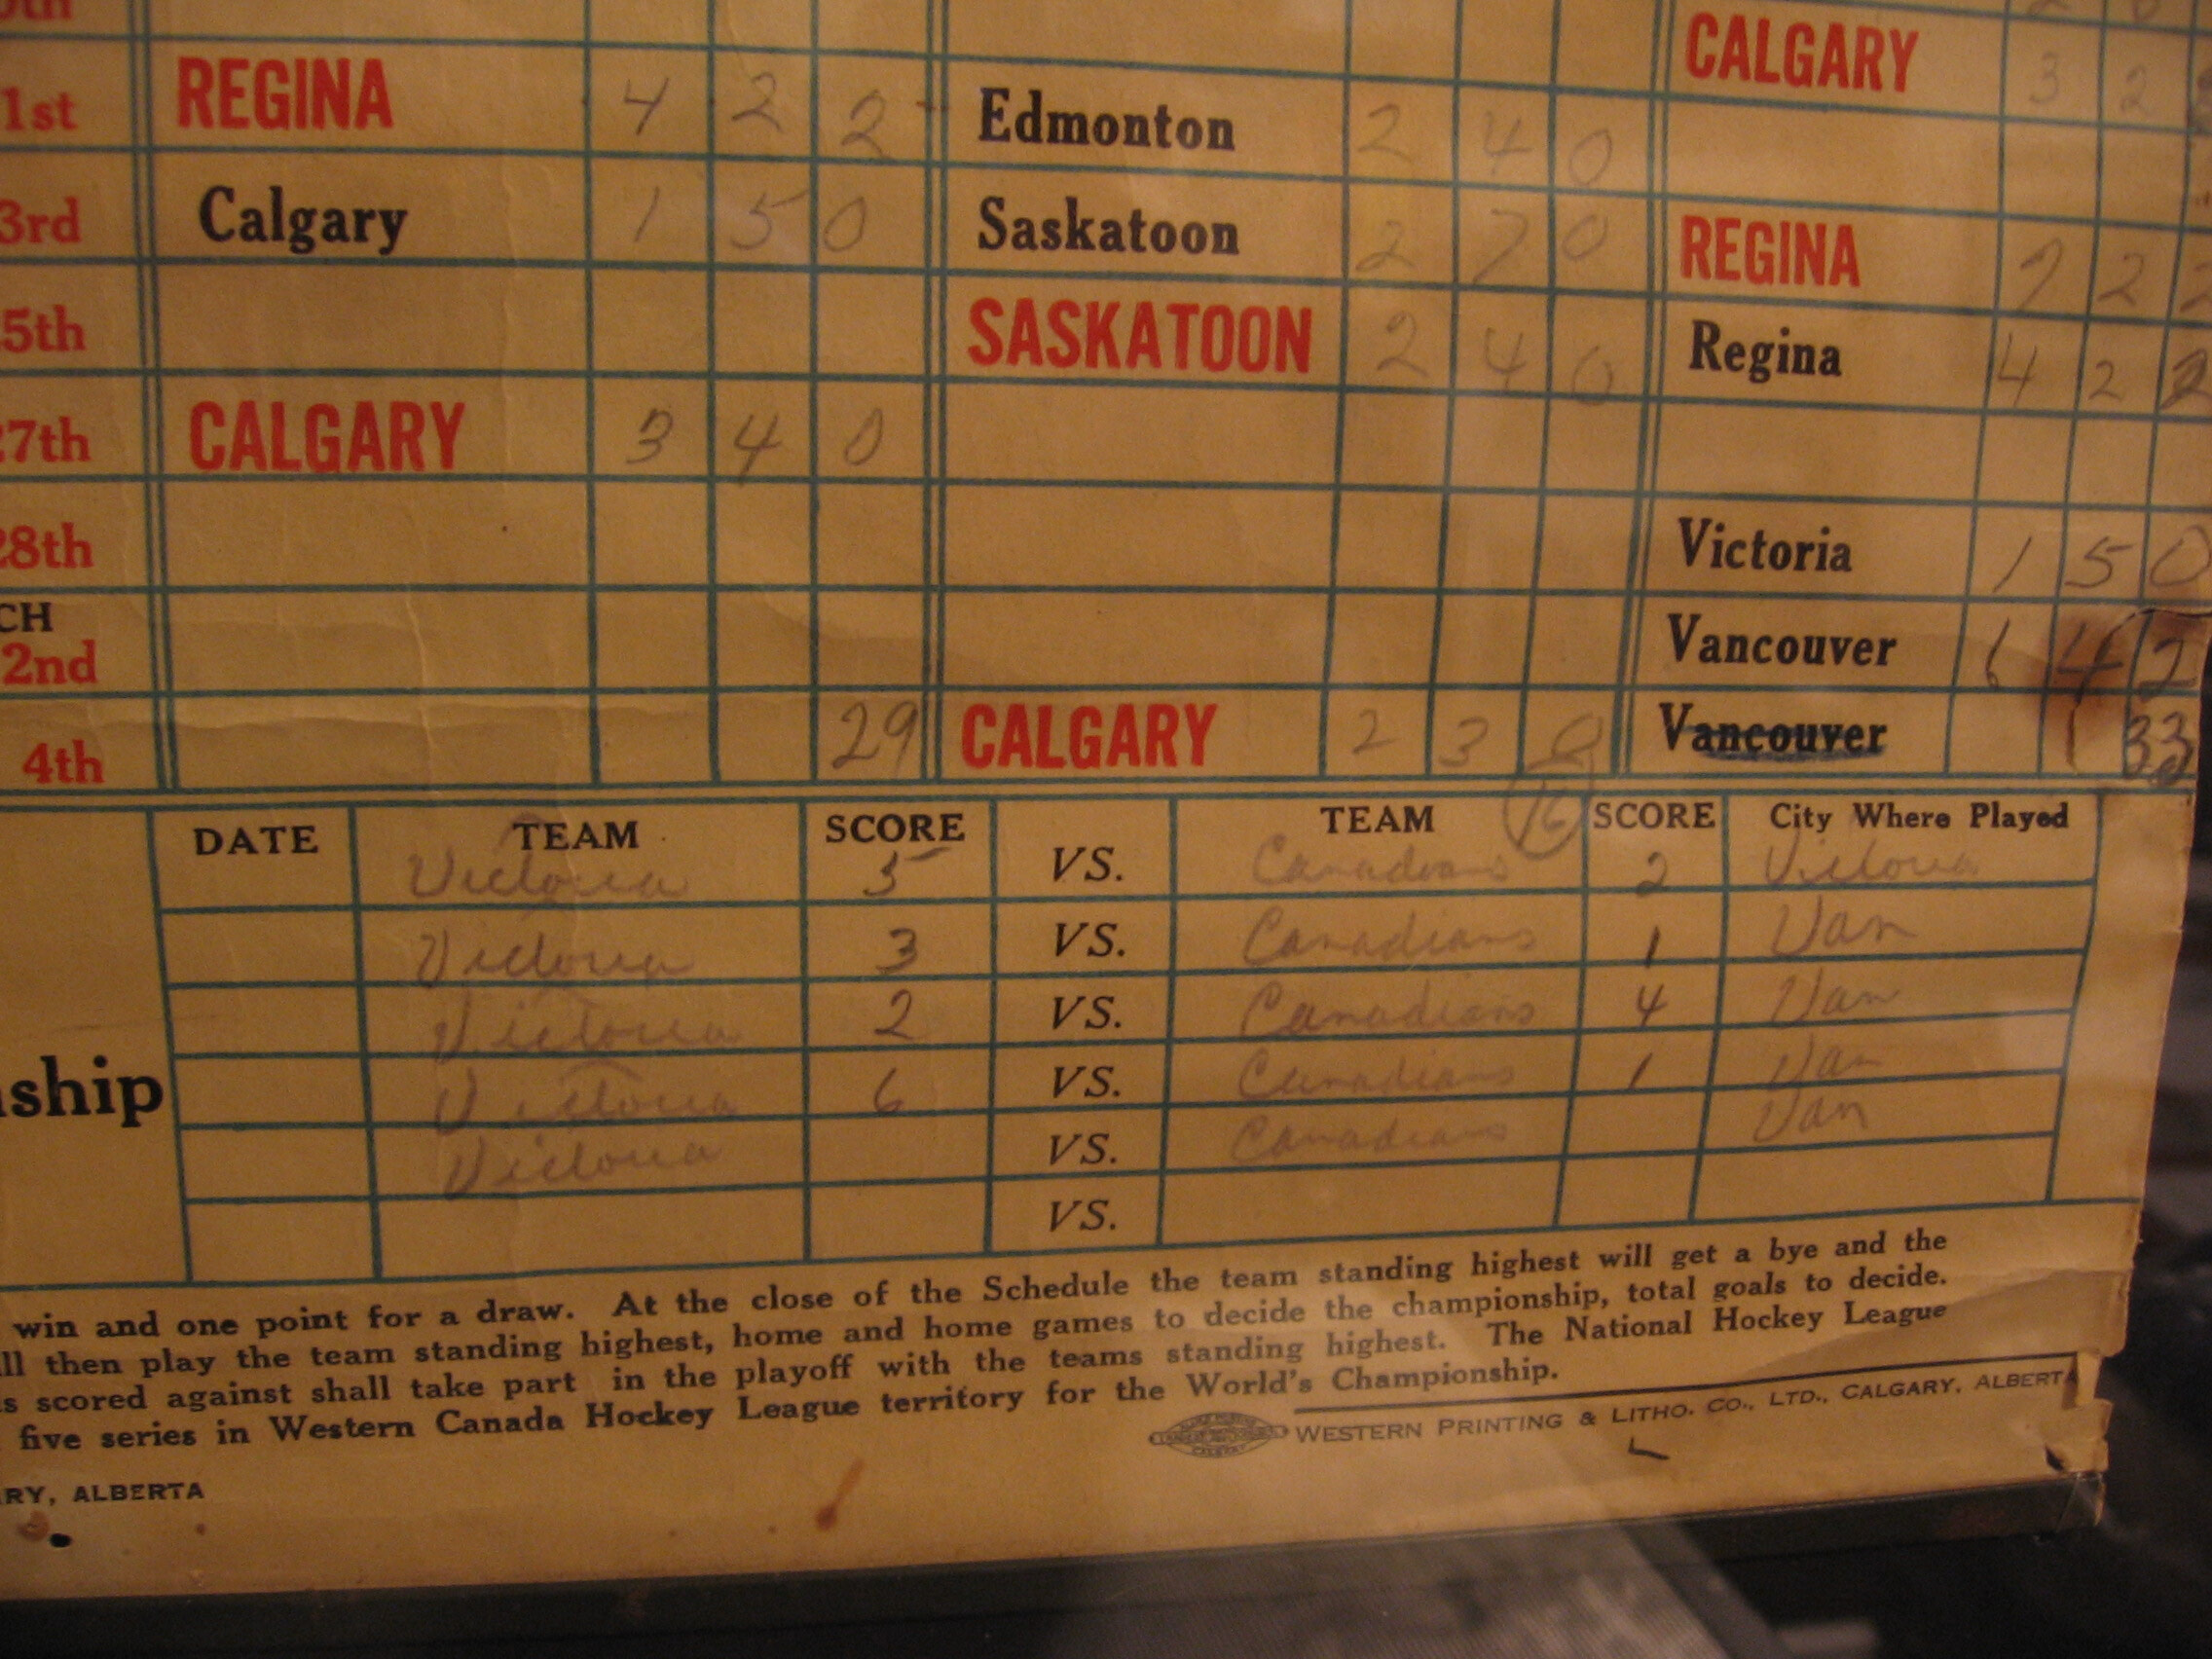 CALGARY 3 2
1st REGINA 4 2 2 Edmonton 2 4 0
3rd Calgary 1 5 0 Saskatoon 2 7 0 REGINA 7 2 2
5th SASKATOON 2 4 0 Regina 4 2 2
27th CALGARY 3 4 0
28th Victoria 1 5 0
CH
2nd Vancouver 1 4 2
4th 29 CALGARY 2 3 0 Vancouver 33
16
DATE TEAM SCORE TEAM SCORE City Where Played
Victoria 5 VS. Canadians 2 Victoria
Victoria 3 VS. Canadians 1 Van
Victoria 2 VS. Canadians 4 Van
ship Victoria 6 VS. Canadians 1 Van
Victoria VS. Canadians Van
VS.
win and one point for a draw. At the close of the Schedule the team standing highest will get a bye and the
ll then play the team standing highest, home and home games to decide the championship, total goals to decide.
s scored against shall take part in the playoff with the teams standing highest. The National Hockey League
five series in Western Canada Hockey League territory for the World's Championship.
WESTERN PRINTING & LITHO. CO., LTD., CALGARY, ALBERTA
RY, ALBERTA